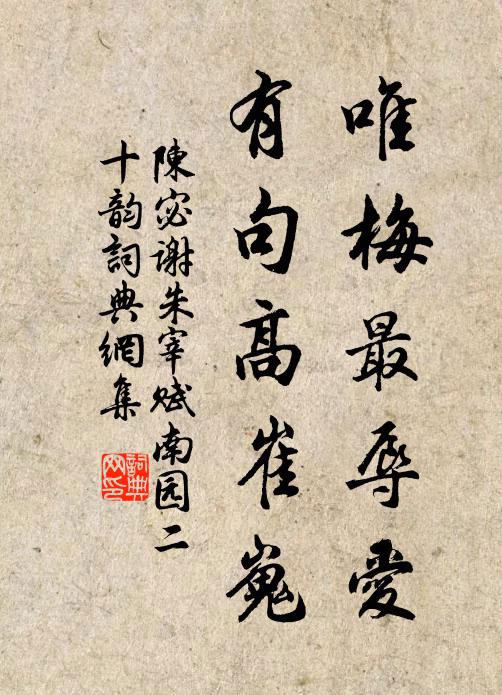 唯梅最辱愛
有句高崔嵬
陳宓谢朱宰赋南园二
十韵詞典網集
詞典
网印